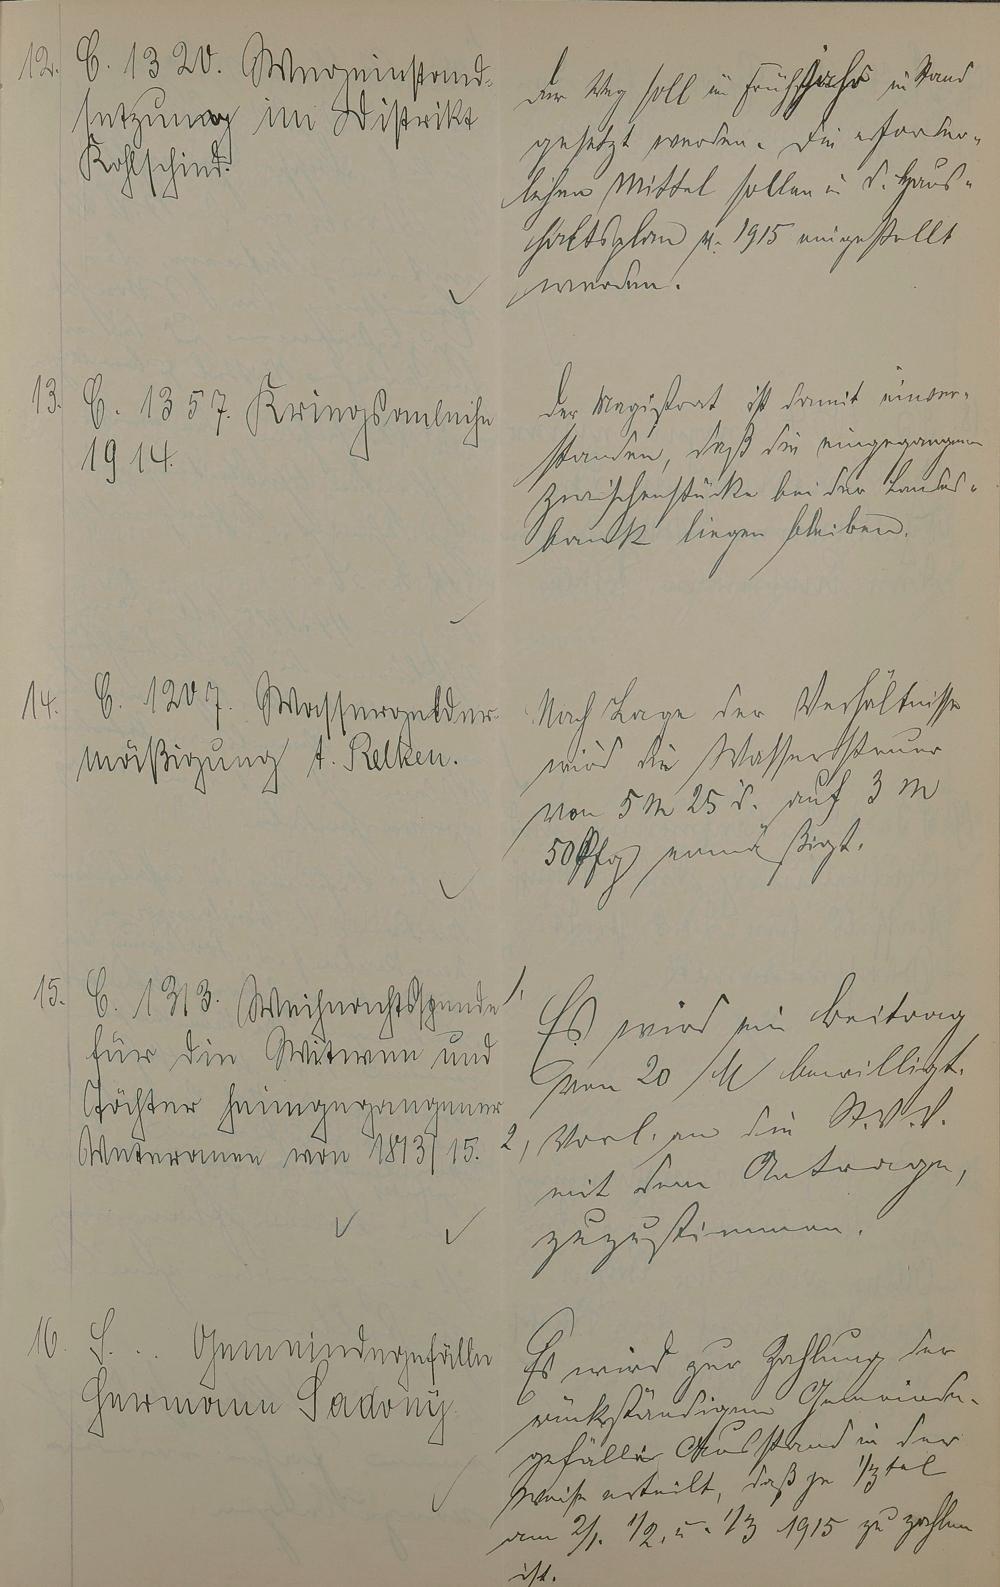 12. C. 1320. Wegeinstand-
setzung im Distrikt
Kohlschind.
Der Weg soll im Frühjahr in Stand
gesetzt werden. Die erforder-
lichen Mittel sollen i. d. Haus-
haltsplan p. 1915 eingestellt
werden.
13. C. 1357. Kriegsanleihe
1914.
Der Magistrat ist damit einver-
standen, daß die eingegangenen
Zwischenstücke bei der Landes-
bank liegen bleiben.
14. C. 1207. Wassergelder-
mäßigung f. Relken.
Nach Lage der Verhältnisse
wird die Wassersteuer
von 5 M 25 d. auf 3 M
50 Pfg ermäßigt.
15. C. 1313. Weihnachtsspende
für die Witwen und
Töchter heimgegangener
Veteranen von 1813/15.
1, Es wird ein Beitrag
von 20 M bewilligt.
2, Vorl. an die St.V.V.
mit dem Antrage,
zuzustimmen.
16. S. .. Gemeindegefälle
Hermann Sadony.
Es wird zur Zahlung der
rückständigen Gemeinde-
gefälle Ausstand in der
Weise erteilt, daß je 1/3tel
am 2/1. 1/2. u. 1/3 1915 zu zahlen
ist.